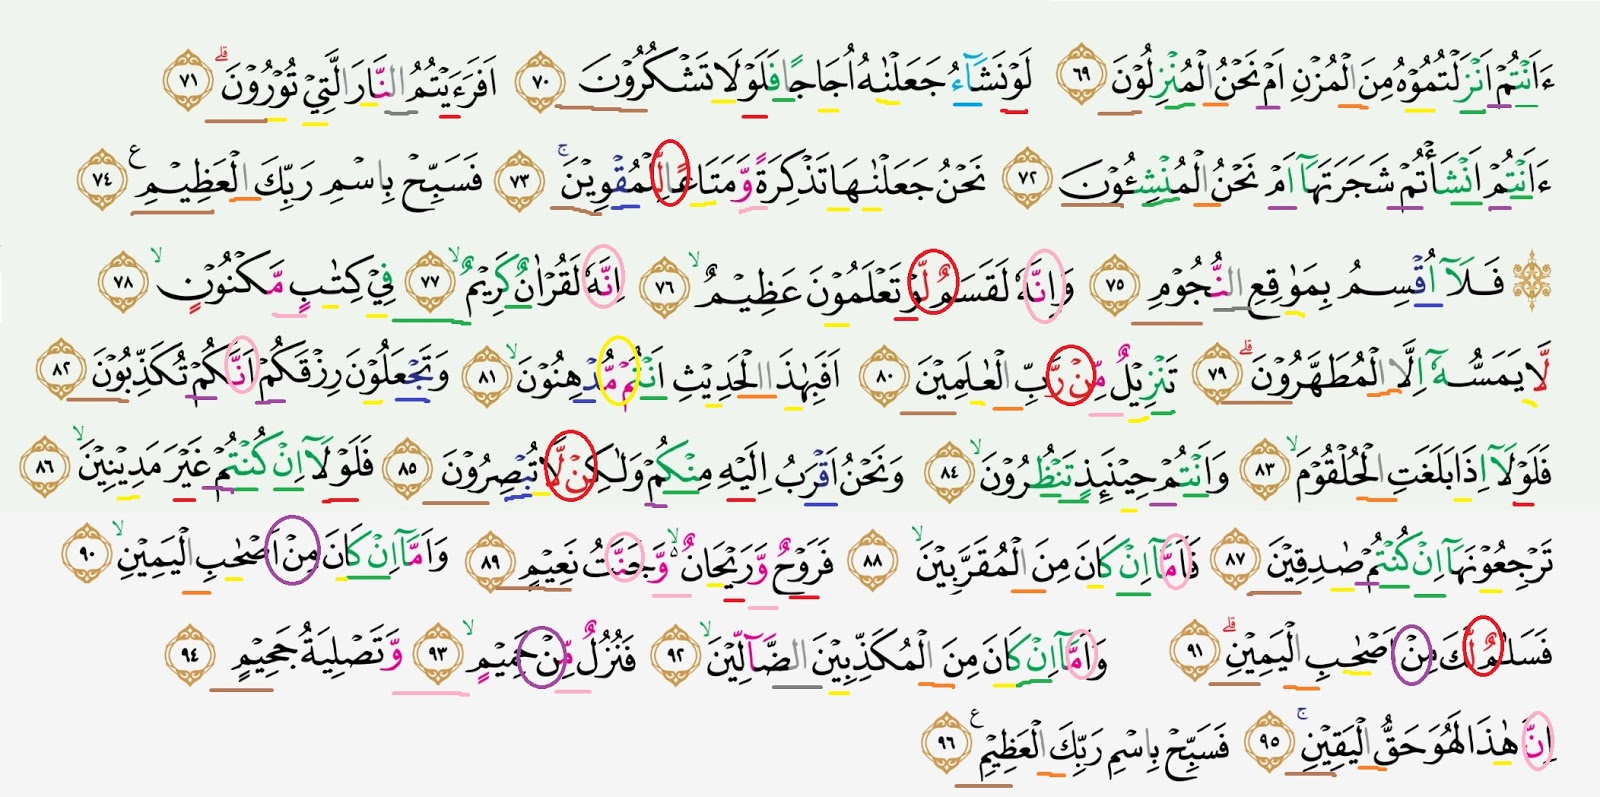 ءَاَنْتُمْ اَنْزَلْتُمُوْهُ مِنَ الْمُزْنِ اَمْ نَحْنُ الْمُنْزِلُوْنَ ٦٩ لَوْ نَشَاۤءُ جَعَلْنٰهُ اُجَاجًا فَلَوْلَا تَشْكُرُوْنَ ٧٠ اَفَرَءَيْتُمُ النَّارَ الَّتِيْ تُوْرُوْنَ ۗ ٧١
ءَاَنْتُمْ اَنْشَأْتُمْ شَجَرَتَهَآ اَمْ نَحْنُ الْمُنْشِـُٔوْنَ ٧٢ نَحْنُ جَعَلْنٰهَا تَذْكِرَةً وَّمَتَاعًا لِّلْمُقْوِيْنَ ۚ ٧٣ فَسَبِّحْ بِاسْمِ رَبِّكَ الْعَظِيْمِ ࣖ ٧٤
۞ فَلَآ اُقْسِمُ بِمَوٰقِعِ النُّجُوْمِ ٧٥ وَاِنَّهٗ لَقَسَمٌ لَّوْ تَعْلَمُوْنَ عَظِيْمٌ ۙ ٧٦ اِنَّهٗ لَقُرْاٰنٌ كَرِيْمٌ ۙ ٧٧ فِيْ كِتٰبٍ مَّكْنُوْنٍ ۙ ٧٨
لَّا يَمَسُّهٗٓ اِلَّا الْمُطَهَّرُوْنَ ۗ ٧٩ تَنْزِيْلٌ مِّنْ رَّبِّ الْعٰلَمِيْنَ ٨٠ اَفَبِهٰذَا الْحَدِيْثِ اَنْتُمْ مُّدْهِنُوْنَ ۙ ٨١ وَتَجْعَلُوْنَ رِزْقَكُمْ اَنَّكُمْ تُكَذِّبُوْنَ ٨٢
فَلَوْلَآ اِذَا بَلَغَتِ الْحُلْقُوْمَ ۙ ٨٣ وَاَنْتُمْ حِيْنَىِٕذٍ تَنْظُرُوْنَ ۙ ٨٤ وَنَحْنُ اَقْرَبُ اِلَيْهِ مِنْكُمْ وَلٰكِنْ لَّا تُبْصِرُوْنَ ٨٥ فَلَوْلَآ اِنْ كُنْتُمْ غَيْرَ مَدِيْنِيْنَ ۙ ٨٦
تَرْجِعُوْنَهَآ اِنْ كُنْتُمْ صٰدِقِيْنَ ٨٧ فَاَمَّآ اِنْ كَانَ مِنَ الْمُقَرَّبِيْنَ ۙ ٨٨ فَرَوْحٌ وَّرَيْحَانٌ ۙە وَّجَنَّتُ نَعِيْمٍ ٨٩ وَاَمَّآ اِنْ كَانَ مِنْ اَصْحٰبِ الْيَمِيْنِ ۙ ٩٠
فَسَلٰمٌ لَّكَ مِنْ اَصْحٰبِ الْيَمِيْنِ ۗ ٩١ وَاَمَّآ اِنْ كَانَ مِنَ الْمُكَذِّبِيْنَ الضَّاۤلِّيْنَ ۙ ٩٢ فَنُزُلٌ مِّنْ حَمِيْمٍ ۙ ٩٣ وَّتَصْلِيَةُ جَحِيْمٍ ٩٤
اِنَّ هٰذَا لَهُوَ حَقُّ الْيَقِيْنِ ۚ ٩٥ فَسَبِّحْ بِاسْمِ رَبِّكَ الْعَظِيْمِ ࣖ ٩٦